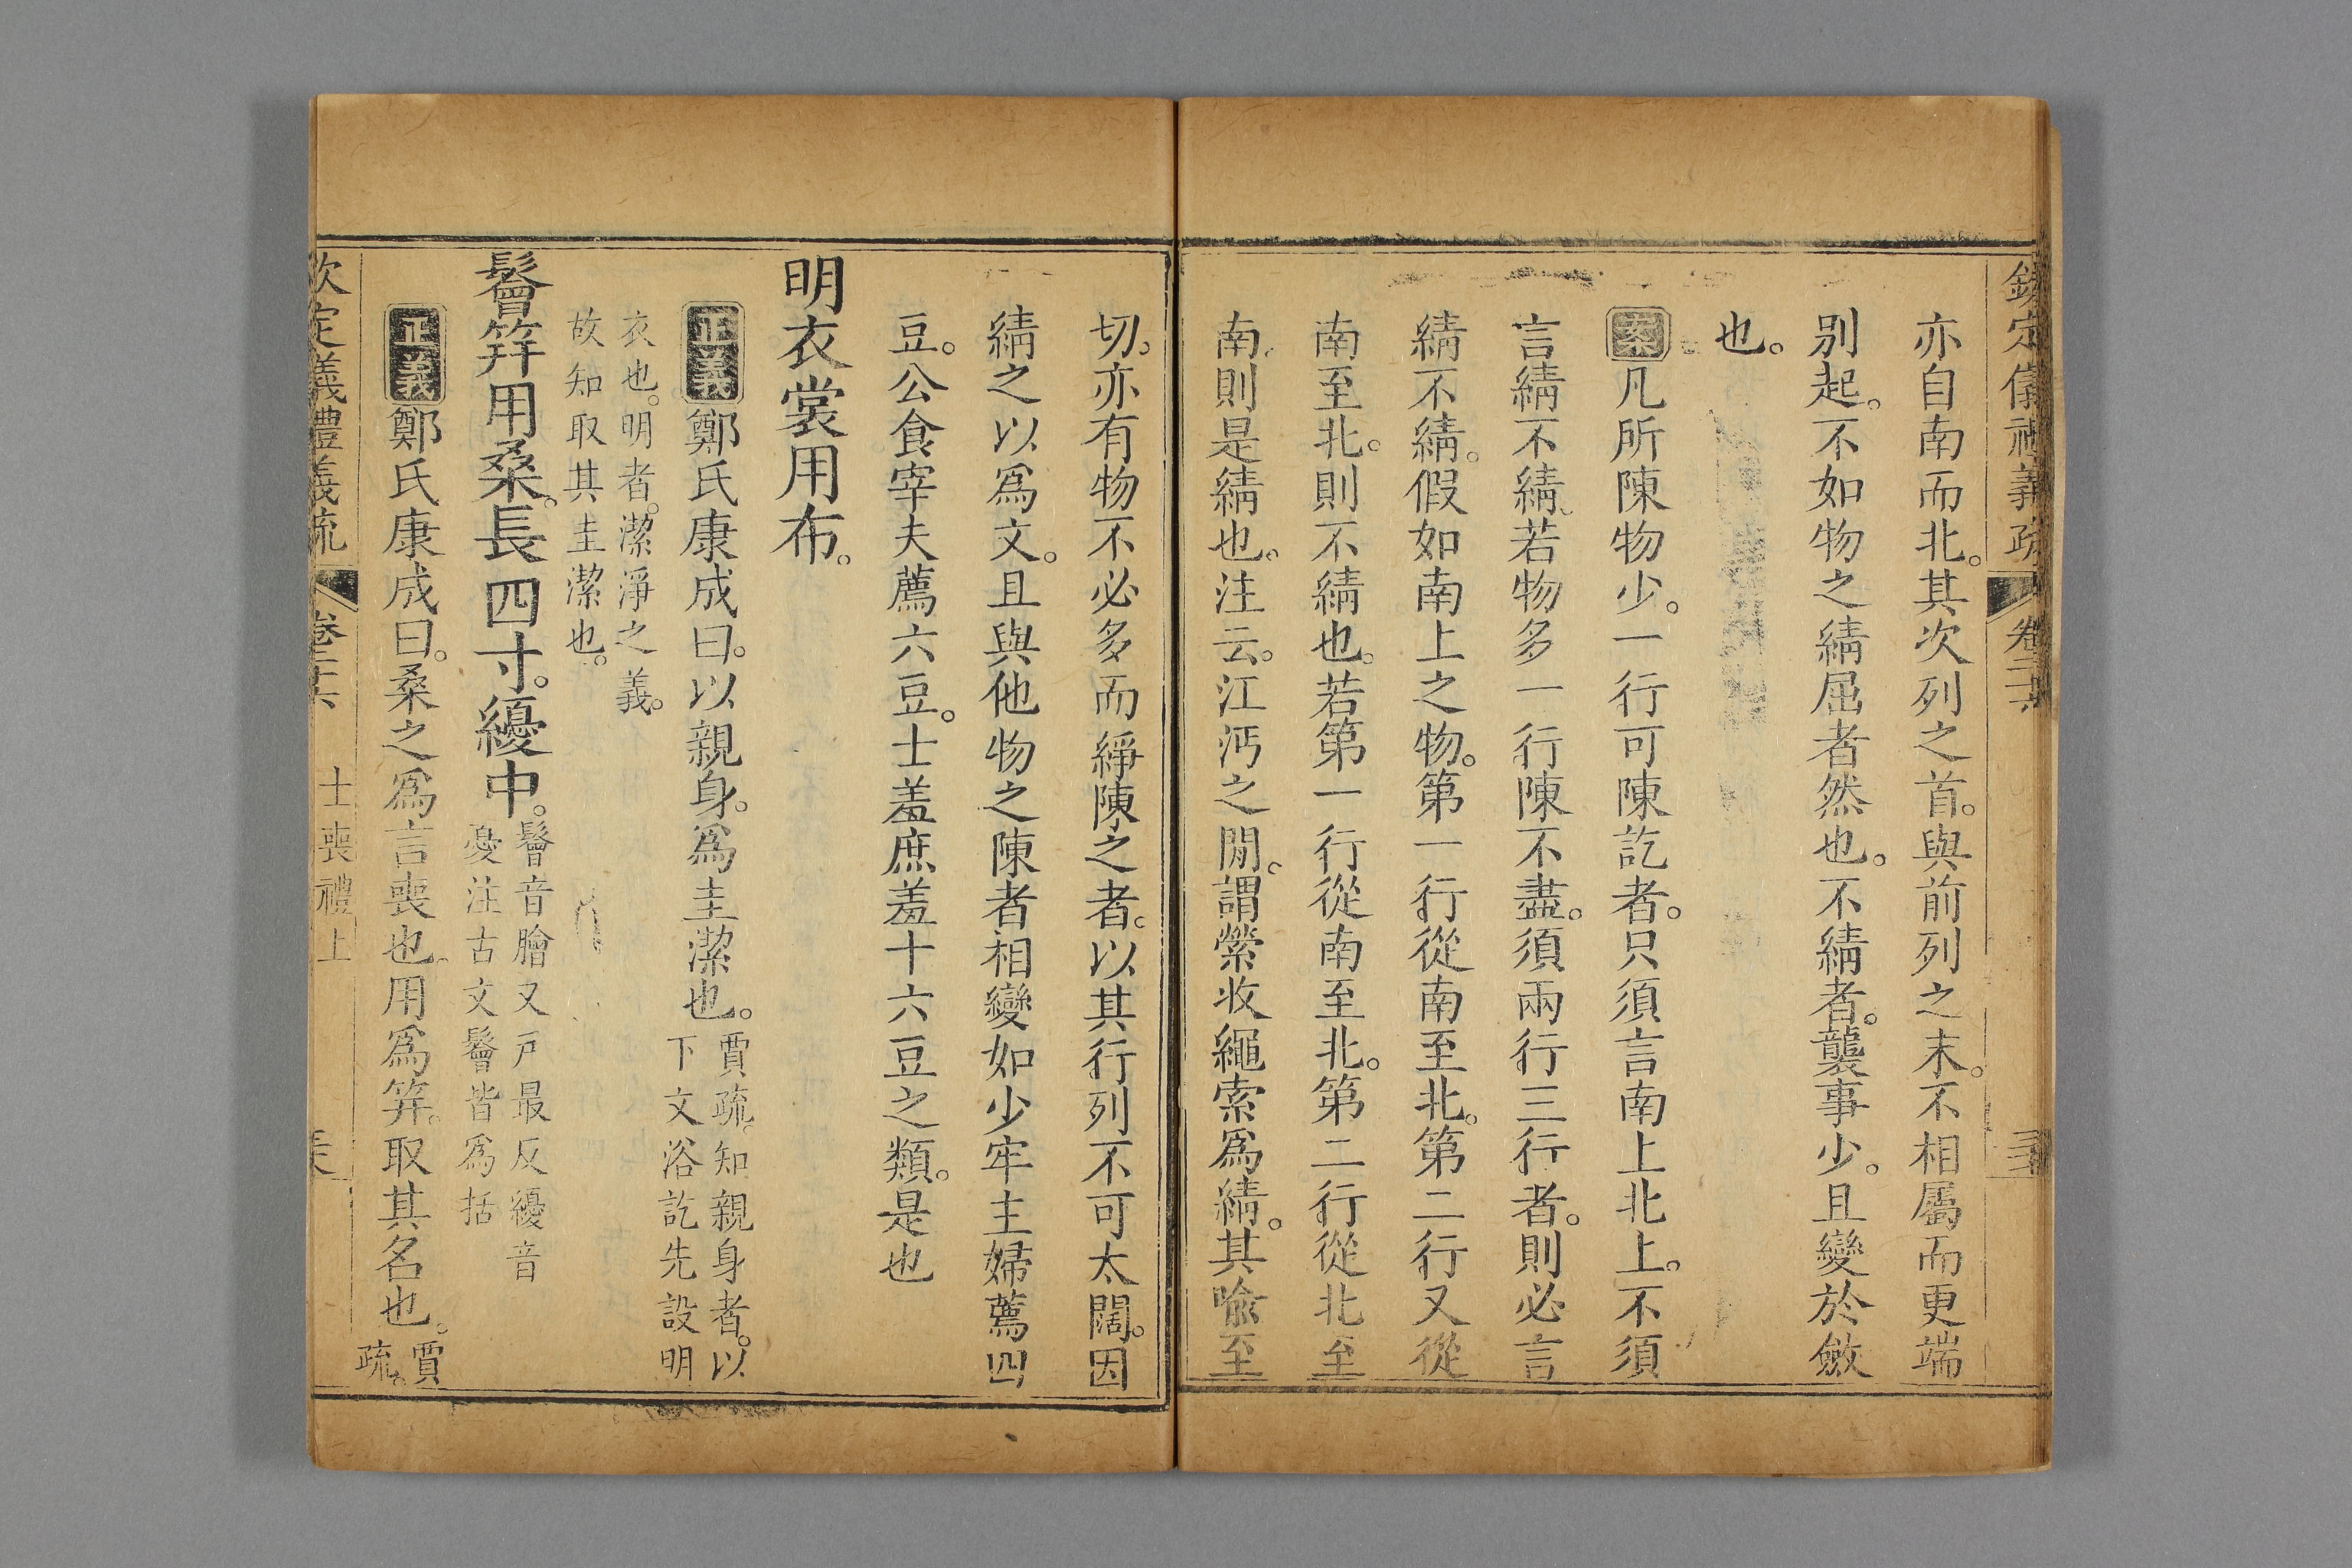 欽定儀禮義疏 卷二十六
亦自南而北。其次列之首。與前列之末。不相屬而更端
別起。不如物之綪屈者然也。不綪者。襲事少。且變於斂
也。
案凡所陳物少。一行可陳訖者。只須言南上北上。不須
言綪不綪。若物多一行陳不盡。須兩行三行者。則必言
綪不綪。假如南上之物。第一行從南至北。第二行又從
南至北。則不綪也。若第一行從南至北。第二行從北至
南。則是綪也。注云。江沔之閒。謂縈收繩索爲綪。其喩至
切。亦有物不必多而綪陳之者。以其行列不可太闊。因
綪之以爲文。且與他物之陳者相變如少牢主婦薦四
豆。公食宰夫薦六豆。士羞庶羞十六豆之類。是也
明衣裳用布。
正義鄭氏康成曰。以親身。爲圭潔也。賈疏。知親身者。以
下文浴訖先設明
衣也。明者。潔淨之義。
故知取其圭潔也。
鬠笄用桑。長四寸。纋中。鬠音膾又戸最反纋音
憂注古文鬠皆爲括
正義鄭氏康成曰。桑之爲言喪也。用爲笄。取其名也。賈
疏。
欽定義禮義疏 卷二十六 士喪禮上